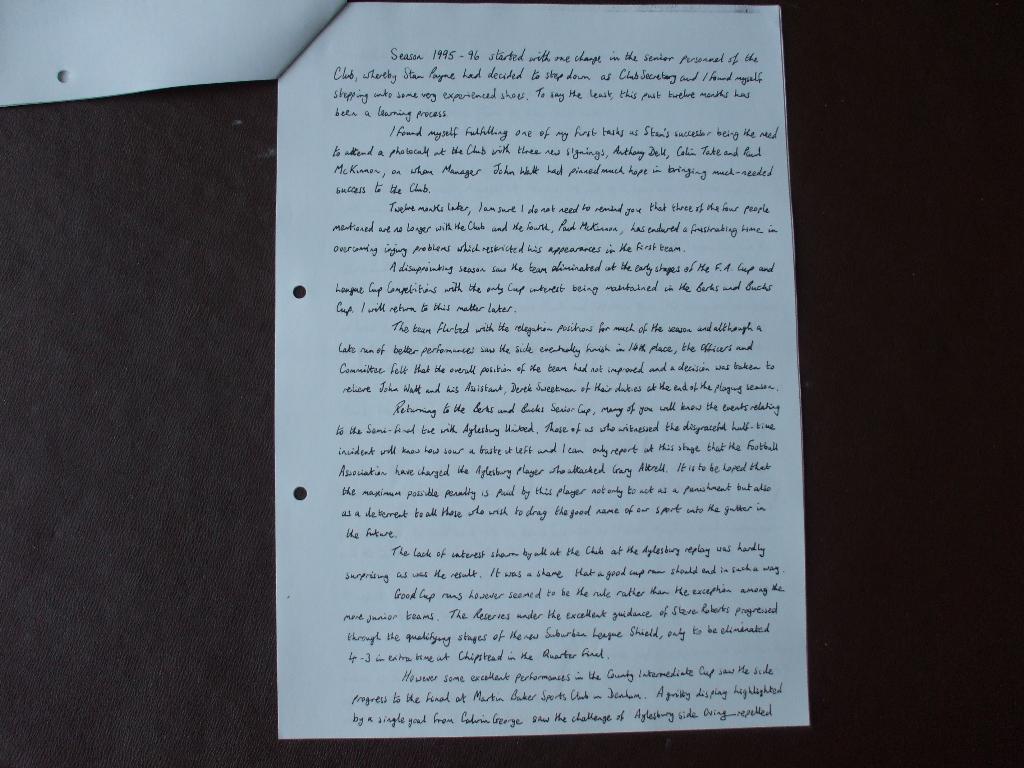 Season 1995-96 started with one change in the senior personnel of the
Club, whereby Stan Payne had decided to stop down as Club Secretary and I found myself
stepping into some very experienced shoes. To say the least, this past twelve months has
been a learning process.
I found myself fulfilling one of my first tasks as Stan's successor being the need
to attend a photocall at the Club with three new signings, Anthony Dell, Colin Tate and Paul
McKinnon, on whom Manager John Watt had pinned much hope in bringing much-needed
success to the Club.
Twelve months later, I am sure I do not need to remind you that three of the four people
mentioned are no longer with the Club and the fourth, Paul McKinnon, has endured a frustrating time in
overcoming injury problems which restricted his appearances in the first team.
A disappointing season saw the team eliminated at the early stages of the F.A. Cup and
League Cup Competitions with the only Cup interest being maintained in the Berks and Bucks
Cup. I will return to this matter later.
The team flirted with the relegation positions for much of the season and although a
late run of better performances saw the side eventually finish in 14th place, the Officers and
Committee felt that the overall position of the team had not improved and a decision was taken to
relieve John Watt and his Assistant, Derek Sweetman of their duties at the end of the playing season.
Returning to the Berks and Bucks Senior Cup, many of you will know the events relating
to the Semi-final tie with Aylesbury United. Those of us who witnessed the disgraceful half-time
incident will know how sour a taste it left and I can only report at this stage that the Football
Association have charged the Aylesbury player who attacked Gary Attrell. It is to be hoped that
the maximum possible penalty is paid by this player not only to act as a punishment but also
as a deterrent to all those who wish to drag the good name of our sport into the gutter in
the future.
The lack of interest shown by all at the Club at the Aylesbury replay was hardly
surprising as was the result. It was a shame that a good cup run should end in such a way.
Good Cup runs however seemed to be the rule rather than the exception among the
more junior teams. The Reserves under the excellent guidance of Steve Roberts progressed
through the qualifying stages of the new Suburban League Shield, only to be eliminated
4-3 in extra time at Chipstead in the Quarter Final.
However some excellent performances in the County Intermediate Cup saw the side
progress to the final at Martin Baker Sports Club in Denham. A gritty display highlighted
by a single goal from Calvin George saw the challenge of Aylesbury side Oving repelled